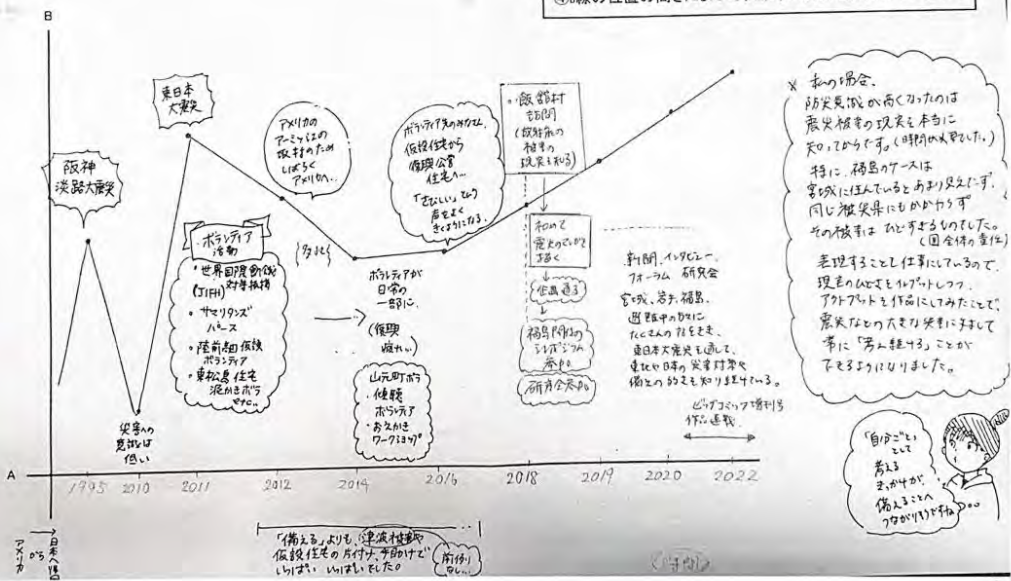 B
阪神
淡路大震災
災害への
意識は
低い
東日本
大震災
ボランティア
活動
・世界国際飢餓
対策機構
(JIFH)
・サマリタンズ
パース
・陸前高田仮設
ボランティア
・東松島住宅
泥かきボラ
アメリカの
アーミッシュの
取材のため
しばらく
アメリカへ…
ボランティアが
日常の
一部に
(復興
疲れ…)
山元町ボラ
・傾聴
ボランティア
・おえかき
ワークショップ
ボランティア先のみなさん
仮設住宅から
復興公営
住宅へ…
「さびしい」という
声をよく
きくようになる
・飯舘村
訪問
(放射能の
被害の
現実を知る)
初めて
震災のマンガを
描く
企画通る
福島関係の
シンポジウム
参加
研究会参加
新聞、インタビュー、
フォーラム 研究会
宮城、岩手、福島、
避難中の方々に
たくさんの話をきき、
東日本大震災を通して、
東北や日本の災害対策や
備えとの向き方を知り続けている。
ビッグコミック増刊号
作品連載
※ 私の場合、
防災意識が高くなったのは
震災被害の現実を本当に
知ってからです。(時間が必要でした。)
特に、福島のケースは
宮城に住んでいるとあまり見えてこず、
同じ被災県にもかかわらず
その被害はひどすぎるものでした。
(国全体の責任)
表現することを仕事にしているので、
現実のひどさをインプットしつつ
アウトプットを作品にしてみたことで、
震災などの大きな災害に対して
常に「考え続ける」ことが
できるようになりました。
「自分ごと」
として
考える
きっかけが、
備えることへ
つながりそうですね
A
1995 2010 2011 2012 2014 2016 2018 2019 2020 2022
アメリカから→日本へ帰国
「備える」よりも、津波被害や
仮設住宅の片付け、手助けで
いっぱい いっぱいでした。
前例
なし…